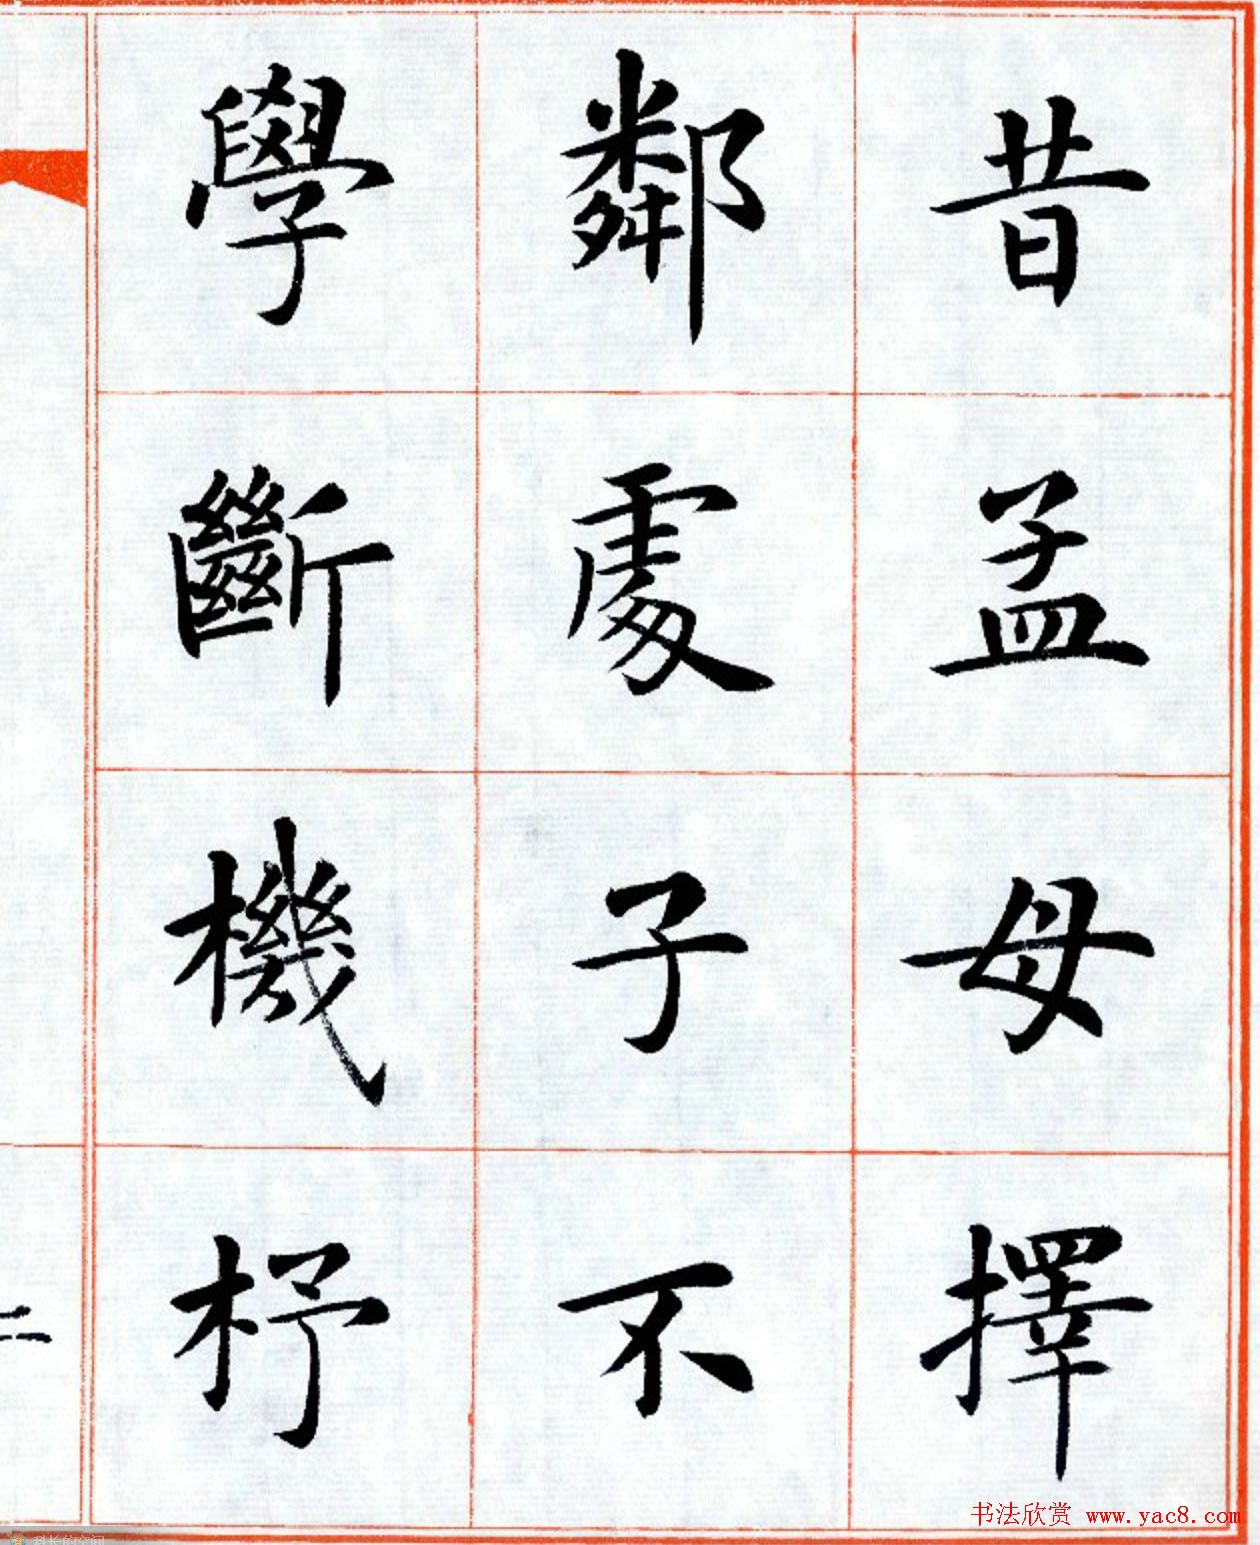 昔孟母擇
鄰處子不
學斷機杼
二
书法欣赏 www.yac8.com